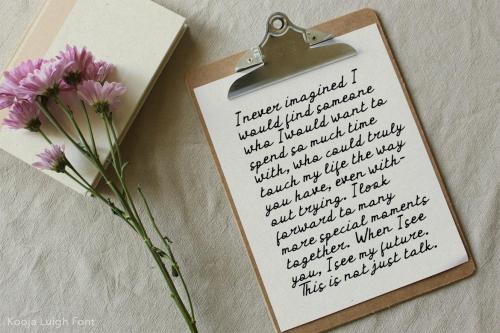 I never imagined I
would find someone
who I would want to
spend so much time
with, who could truly
touch my life the way
you have, even with-
out trying. I look
forward to many
more special moments
together. When I see
you, I see my future.
This is not just talk.
Kooja Luigh Font